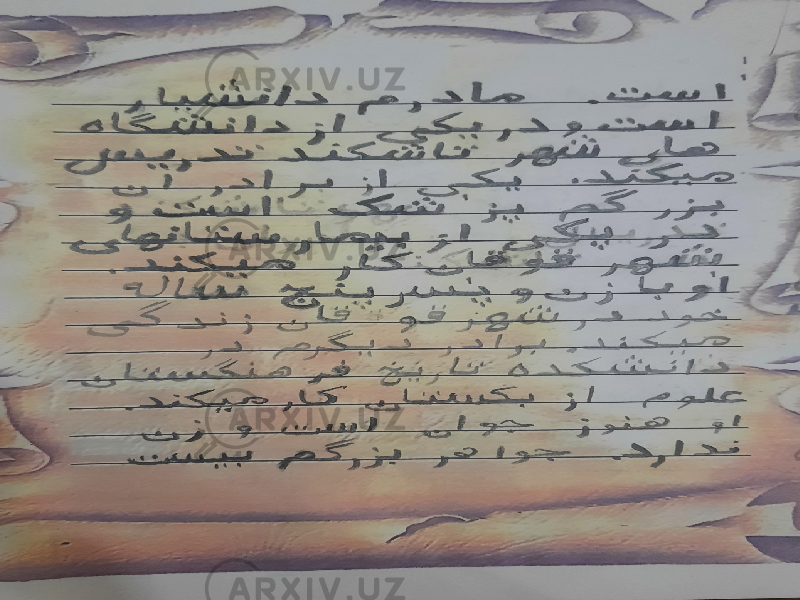 است. مادرم دانشیار
است و در یکی از دانشگاه
های شهر تاشکند تدریس
میکند. یکی از برادر ان
بزر گم پز شک است و
در بیکی از بیمارستانهای
شهر فوقان کار میکند.
او با زن و پسر پنج ساله
خود در شهر فو قان زند گی
میکند. برادر دیگرم در
دانشکده تاریخ فر هنگستان
علوم از بکستان کار میکند.
او هنوز جوان است و زن
ندارد. جواهر بزرگم بیست
ARXIV.UZ
ARXIV.UZ
ARXIV.UZ
ARXIV.UZ